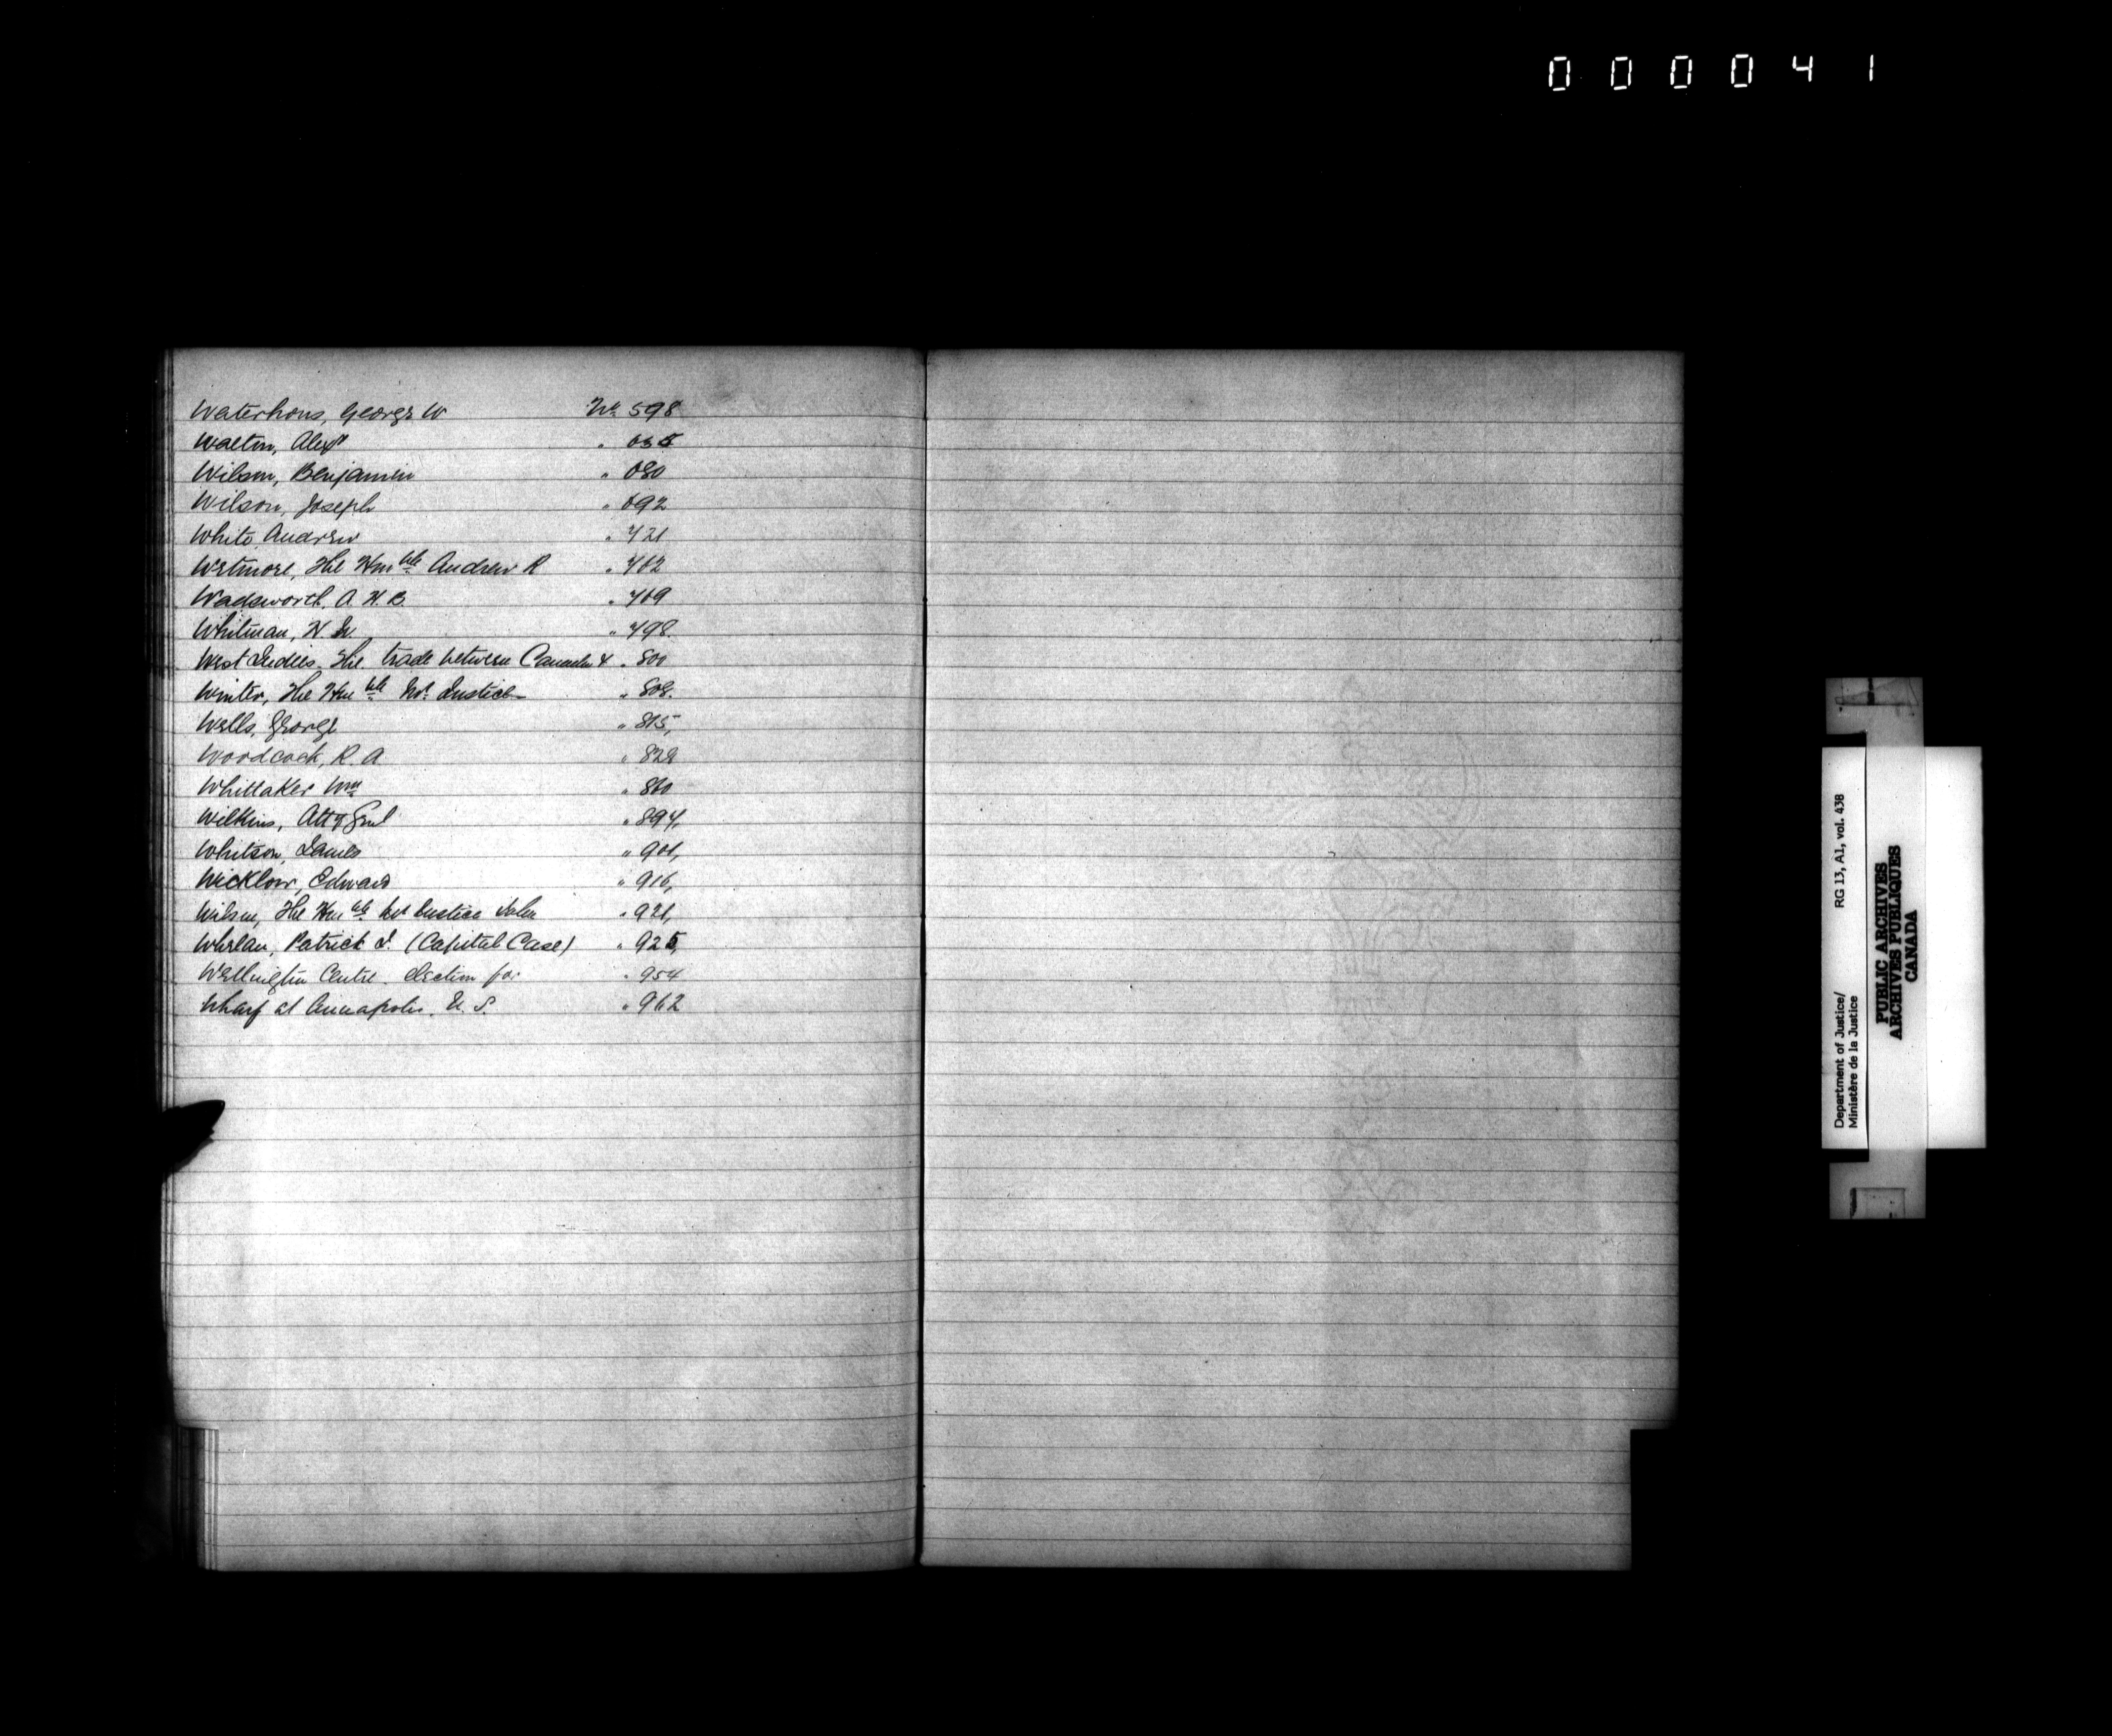 000041
Waterhous, George W No 598
Walton, Alexr " 635
Wilson, Benjamin " 680
Wilson, Joseph " 692
White Andrew " 721
Wetmore, The Honble Andrew R " 762
Wadsworth, A. H. B. " 769
Whitman, W. " 798.
West Indies. The trade between Canada & " 800
Winter, The Honble Mr. Justice " 808.
Wells, George " 815,
Woodcock, R. A " 829
Whittaker Wm " 860
Wilkins, Atty Genl " 894,
Whitson, James " 901,
Wicklow, Edward " 916,
Wilson, The Honble Mr Justice John " 921,
Whelan, Patrick J. (Capital Case) " 925,
Wellington Centre. election for " 954
Wharf at Annapolis. N. S. " 962
Department of Justice/ RG 13, A1, vol. 438
Ministère de la Justice
PUBLIC ARCHIVES
ARCHIVES PUBLIQUES
CANADA